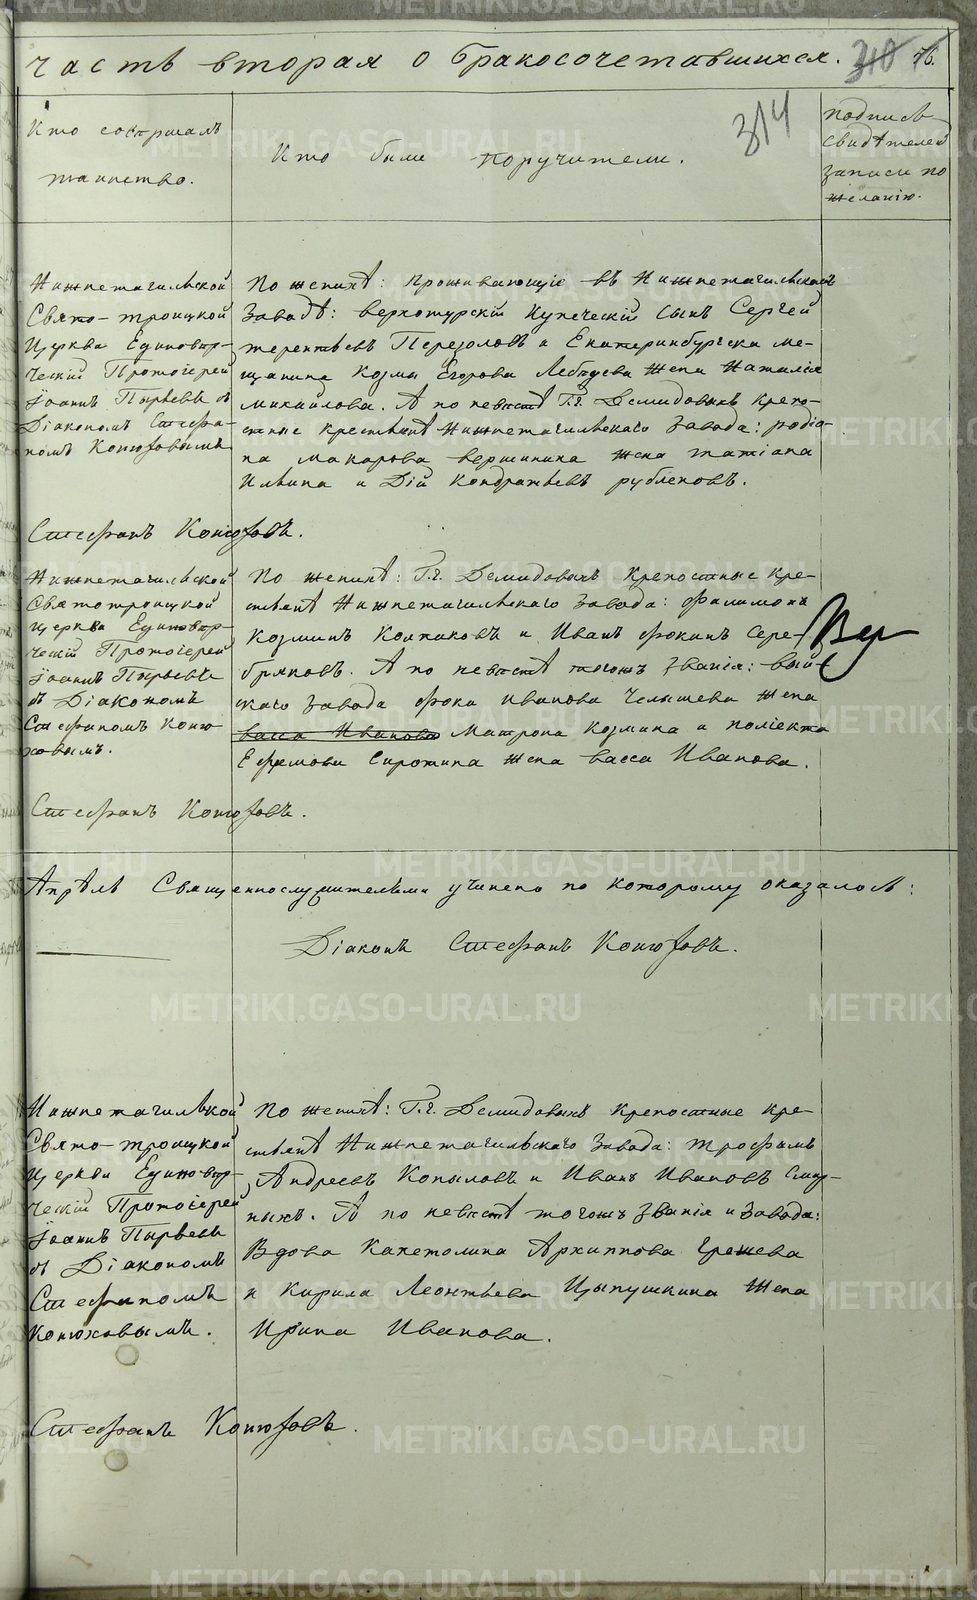 часть вторая о бракосочетавшихся.
310 76.
314
Кто совершалъ
таинство.
Кто были поручители.
подпись
свидѣтелей
записи по
желанію.
Нижнетагильской
Свято-троицкой
Церкви Единовѣр-
ческій Протоіерей
Іоаннъ Пырьевъ съ
Діакономъ Стефа-
номъ Конюховымъ
По женихѣ: проживающіе въ Нижнетагильскомъ
Заводѣ: верхотурскій купеческій сынъ Сергей
терентьевъ Перезоловъ и Екатеринбургска ме-
щанина Козмы Егорова Лебедева жена Наталія
михайлова. А по невѣстѣ Г.г. Демидовыхъ крепо-
стные крестьянѣ Нижнетагильскаго завода: родіо-
на макарова вершинина жена татіана
Ильина и Дій Кондратьевъ рублековъ.
Стефанъ Конюховъ.
Нижнетагильской
Святотроицкой
Церкви Единовѣр-
ческій Протоіерей
Іоаннъ Пырьевъ
съ Діакономъ
Стефаномъ Коню-
ховымъ.
По женихѣ: Г.г. Демидовыхъ крепостные кре-
стьянѣ Нижнетагильскаго завода: филимонъ
козминъ Колпаковъ и Иванъ фокинъ Сере-
бряковъ. А по невѣстѣ тогожъ званія: вый-
скаго завода фока иванова Челышева жена
васса Иванова Матрона Козмина и поліекта
Ефремова Сиротина жена васса Иванова.
Стефанъ Конюховъ.
Апрѣль Священнослужителями учинено по которому оказалось:
Діаконъ Стефанъ Конюховъ.
Нижнетагильской
Свято-троицкой
Церкви Единовѣр-
ческій Протоіерей
Іоаннъ Пырьевъ
съ Діакономъ
Стефаномъ
Конюховымъ.
По женихѣ: Г.г. Демидовыхъ крепостные кре-
стьянѣ Нижнетагильскаго завода: трофимъ
Андреевъ Копыловъ и Иванъ Ивановъ Смир-
ныхъ. А по невѣстѣ тогожъ званія и завода:
Вдова Капетолина Архиппова Грешева
и Кирила Леонтьева Цыпушкина жена
Ирина Иванова.
Стефанъ Конюховъ.
METRIKI.GASO-URAL.RU